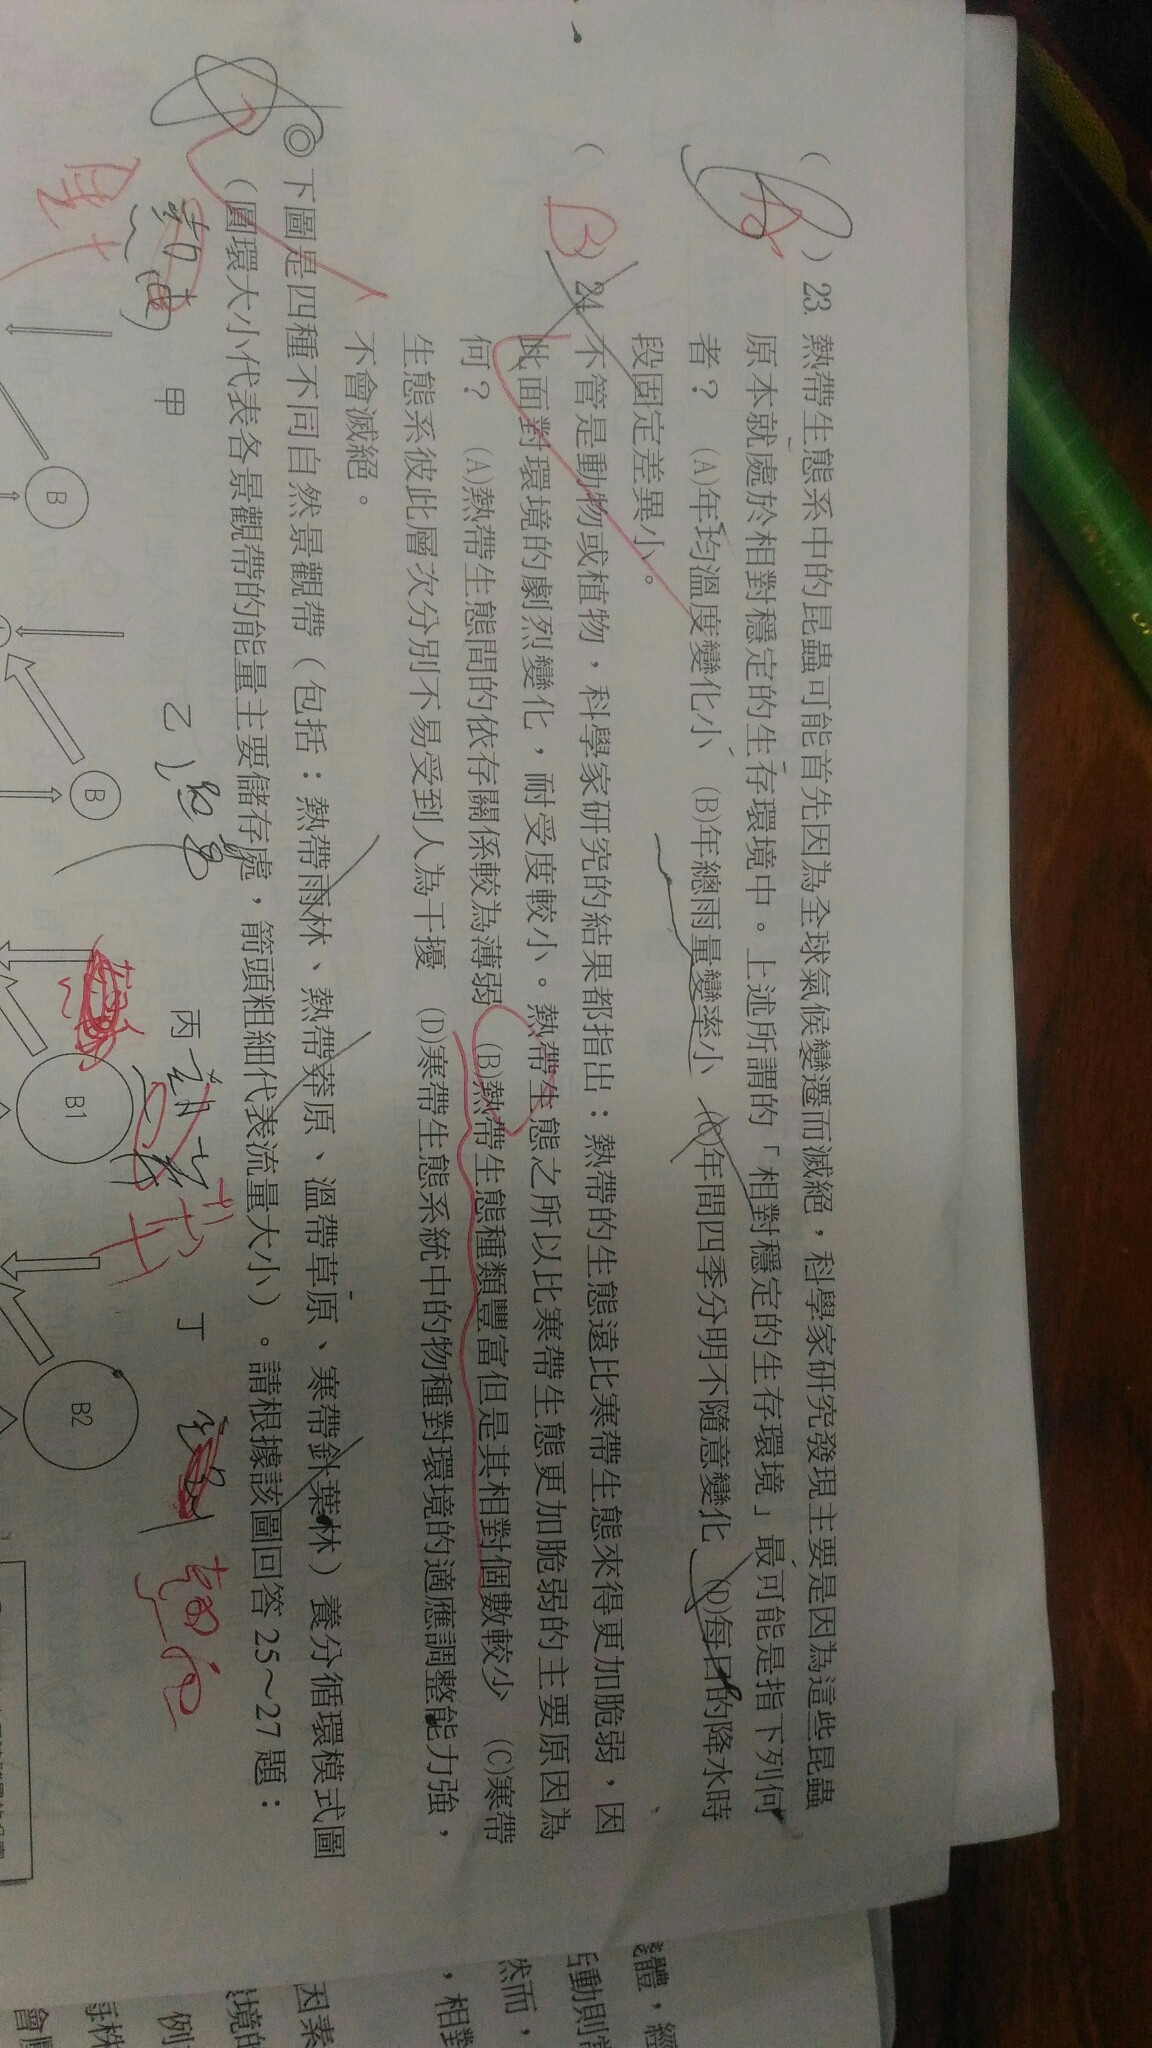 ( ) 23. 熱帶生態系中的昆蟲可能首先因為全球氣候變遷而滅絕，科學家研究發現主要是因為這些昆蟲
原本就處於相對穩定的生存環境中。上述所謂的「相對穩定的生存環境」最可能是指下列何
者？ (A)年均溫度變化小 (B)年總雨量變率小 (C)年間四季分明不隨意變化 (D)每日的降水時
段固定差異小。
A
( B ) 24. 不管是動物或植物，科學家研究的結果都指出：熱帶的生態遠比寒帶生態來得更加脆弱，因
此面對環境的劇烈變化，耐受度較小。熱帶生態之所以比寒帶生態更加脆弱的主要原因為
何？ (A)熱帶生態間的依存關係較為薄弱 (B)熱帶生態種類豐富但是其相對個數較少 (C)寒帶
生態系彼此層次分別不易受到人為干擾 (D)寒帶生態系統中的物種對環境的適應調整能力強，
不會滅絕。
◎下圖是四種不同自然景觀帶（包括：熱帶雨林、熱帶莽原、溫帶草原、寒帶針葉林）養分循環模式圖
（圓環大小代表各景觀帶的能量主要儲存處，箭頭粗細代表流量大小）。請根據該圖回答 25～27 題：
甲 乙 丙 丁
B B B1 B2
識體，經
活動則常
然而，
，相對
因素
環境的
例
每株
會